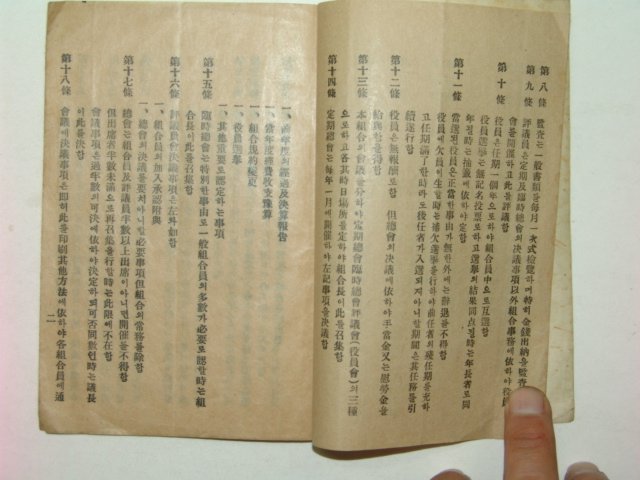 第八條 監査는一般書類를每月一次式檢覽하며特히金錢出納을監査
第九條 評議員은定期及臨時總會의決議事項以外組合事務에依하야役
會를開催하고此를評議함
第十條 役員은任期一個年으로하야組合員中으로互選함
役員選擧는無記名投票로하고選擧의結果同点될時는年長者로同
年될時는抽籤에依하야定함
第十一條 當選된役員은正當한事由가無한外에는辭退를不得함
役員에欠員이生할時는補欠選擧를行하야前任者의殘任期를充하
고任期滿了한때라도後任者가入選되지아니할期間은其任務를引
續遂行함
第十二條 役員은無報酬로함 但總會의決議에依하야手當金又는慰勞金을
給與함을得함
第十三條 本組合의會議를分하야定期總會臨時總會評議會(役員會)의三種
으로하고各其時日場所를定하야組合長이此를召集함
第十四條 定期總會는每年一月에開催하야左記事項을決議함
一、前年度의經過及決算報告
一、當年度經費收支豫算
一、組合規約變更
一、役員選擧
一、其他重要로認定하는事項
第十五條 臨時總會는特別한事由로一般組合員의多數가必要로認할時는組
合長이此를召集함
第十六條 評議員會決議事項은左와如함
一、組合員의加入承認附與
一、總會의決議를要치아니할必要事項但組合의常務를除함
第十七條 總會는組合員及評議員半數以上出席이아니면開催를不得함
但出席者半數未滿으로再召集을行할時는此限에不在함
會議事項은過半數의可決에依하야決定하되可否同數인時는議長
이此를決함
第十八條 會議에決議事項은即히此를印刷其他方法에依하야各組合員에通
二